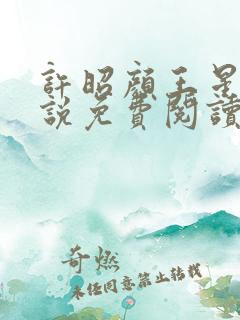 許昭顏王星
說免費閱讀
奇燃
未经同意禁止转载